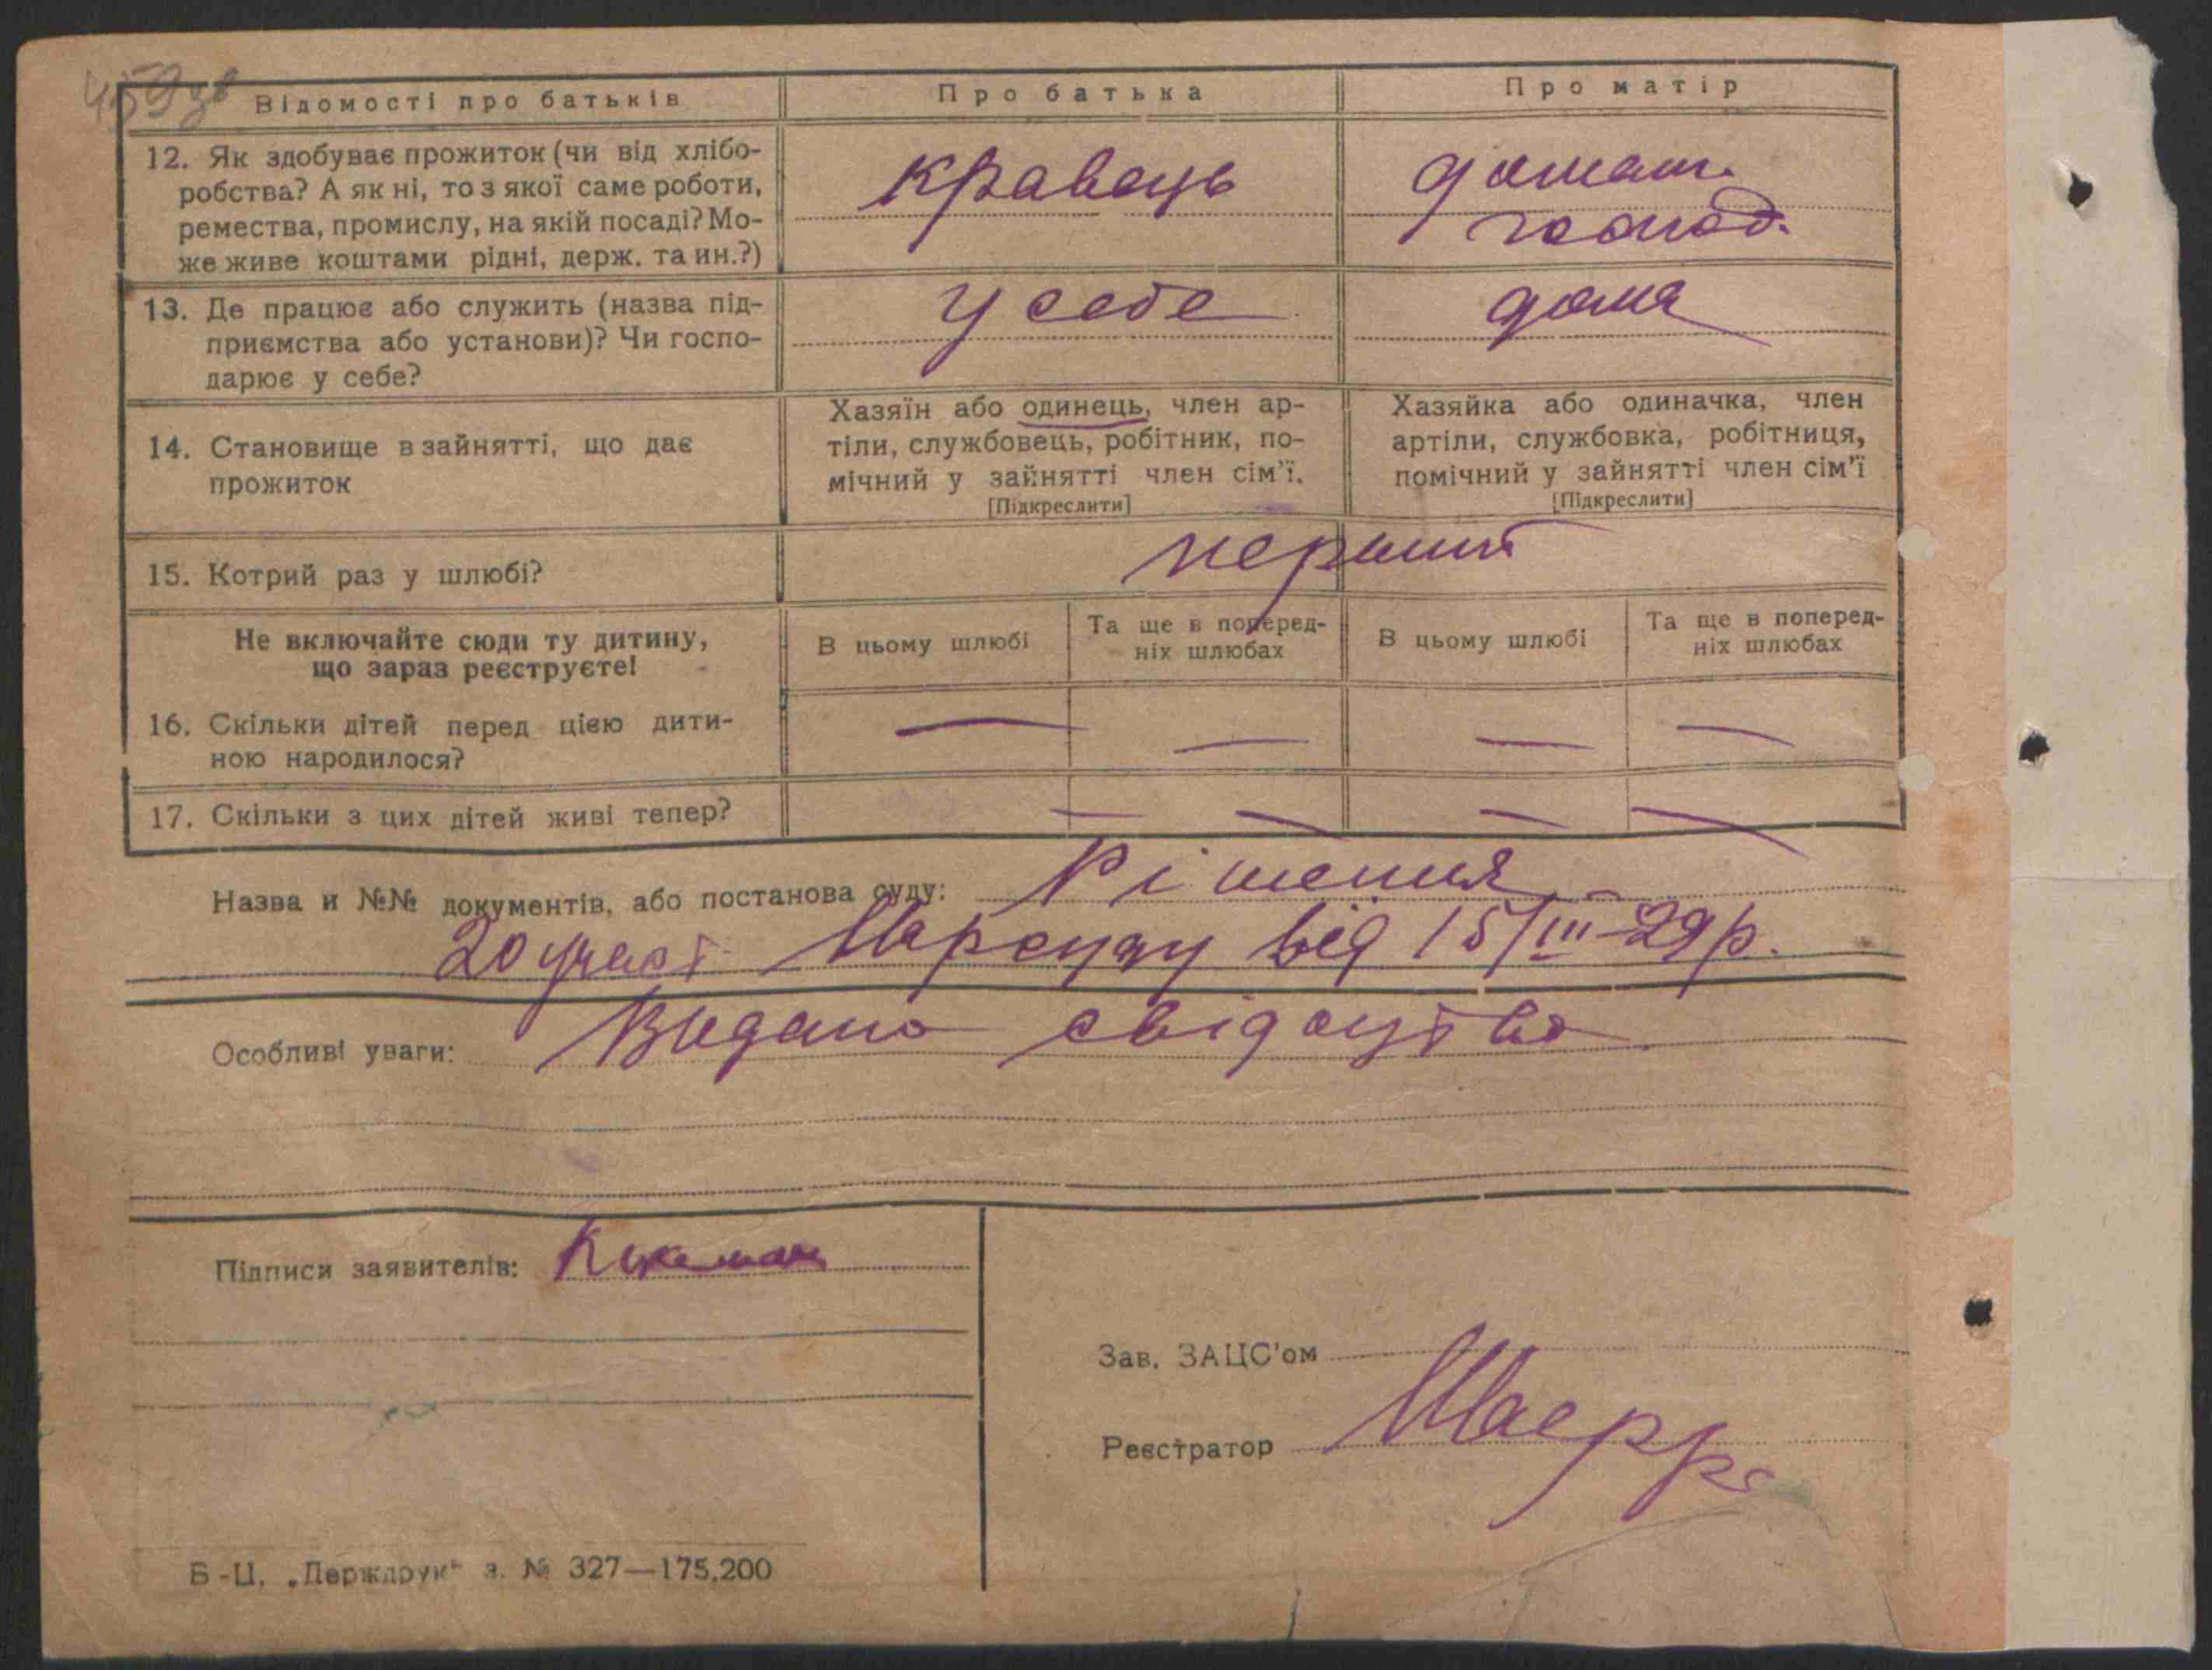 459 зв
Відомості про батьків
Про батька
Про матір
12. Як здобуває прожиток (чи від хлібо-
робства? А як ні, то з якої саме роботи,
ремества, промислу, на якій посаді? Мо-
же живе коштами рідні, держ. та ин.?)
кравець
домашн.
господ.
13. Де працює або служить (назва під-
приємства або установи)? Чи госпо-
дарює у себе?
у себе
дома
14. Становище в зайнятті, що дає
прожиток
Хазяїн або одинець, член ар-
тіли, службовець, робітник, по-
мічний у зайнятті член сім'ї.
[Підкреслити]
Хазяйка або одиначка, член
артіли, службовка, робітниця,
помічний у зайнятті член сім'ї
[Підкреслити]
15. Котрий раз у шлюбі?
перший
Не включайте сюди ту дитину,
що зараз реєструєте!
В цьому шлюбі
Та ще в поперед-
ніх шлюбах
В цьому шлюбі
Та ще в поперед-
ніх шлюбах
16. Скільки дітей перед цією дити-
ною народилося?
— — — —
17. Скільки з цих дітей живі тепер?
— — — —
Назва и №№ документів, або постанова суду: Рішення
20 участ Нарсуду від 15/III-29 р.
Особливі уваги: Видано свідоцтво
Підписи заявителів:
Зав. ЗАЦС'ом
Реєстратор
Б-Ц. „Держдрук“ з. № 327—175.200